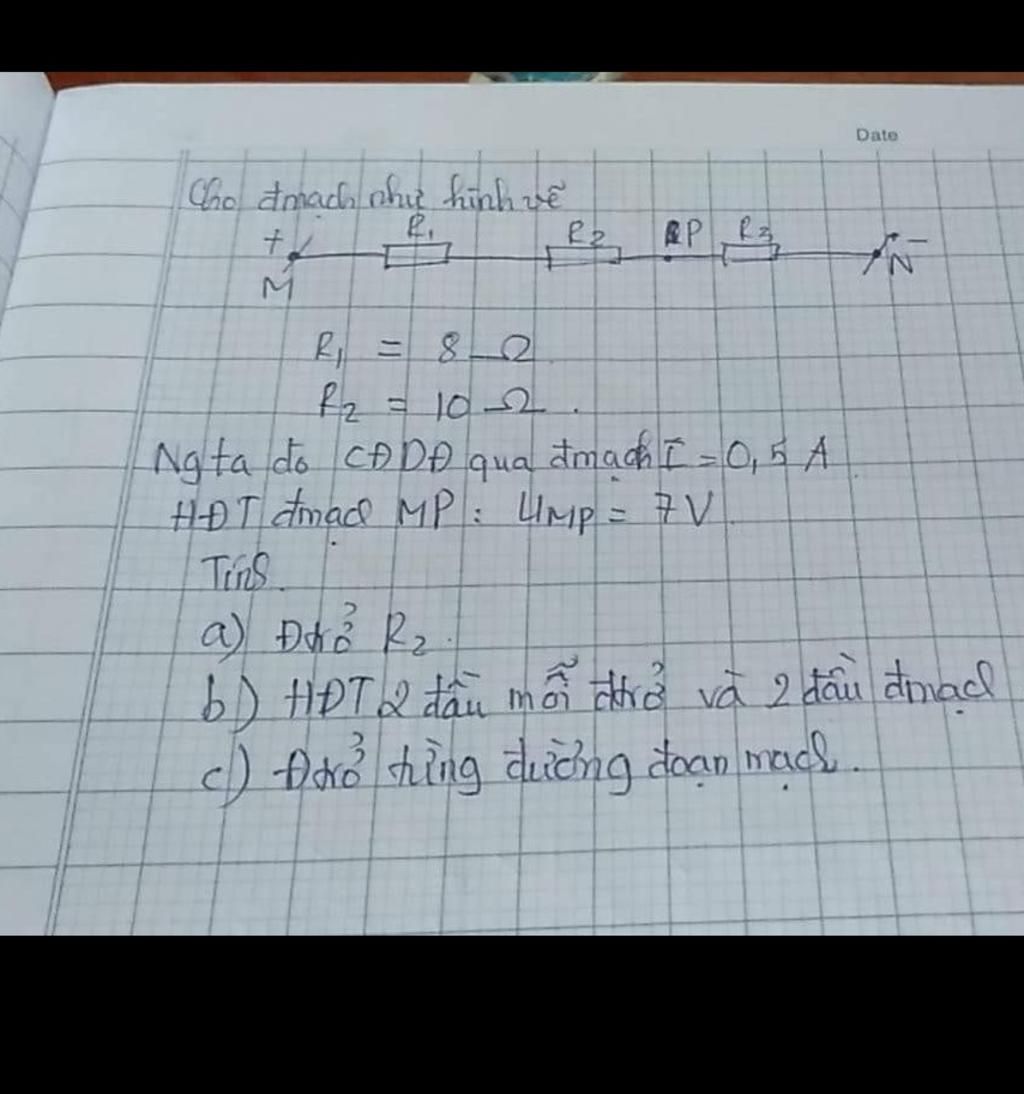 Date
Cho đmạch như hình vẽ
+ R₁ R₂ P R₃ -
M N
R₁ = 8 Ω
R₂ = 10 Ω.
Ng ta đo CĐDĐ qua đmạch I = 0,5 A
HĐT đmạch MP: UMP = 7V.
Tính.
a) Đtrở R₂.
b) HĐT 2 đầu mỗi đtrở và 2 đầu đmạch
c) Đtrở tương đương đoạn mạch.